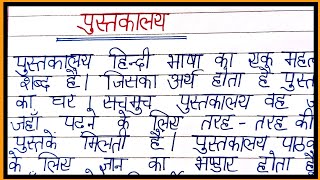 पुस्तकालय
पुस्तकालय हिन्दी भाषा का एक
शब्द है। जिसका अर्थ होता है
का घर। सचमुच पुस्तकालय वह
जहाँ पढ़ने के लिए तरह-तरह की
पुस्तकें मिलती हैं। पुस्तकालय
के लिए ज्ञान का भण्डार होता है